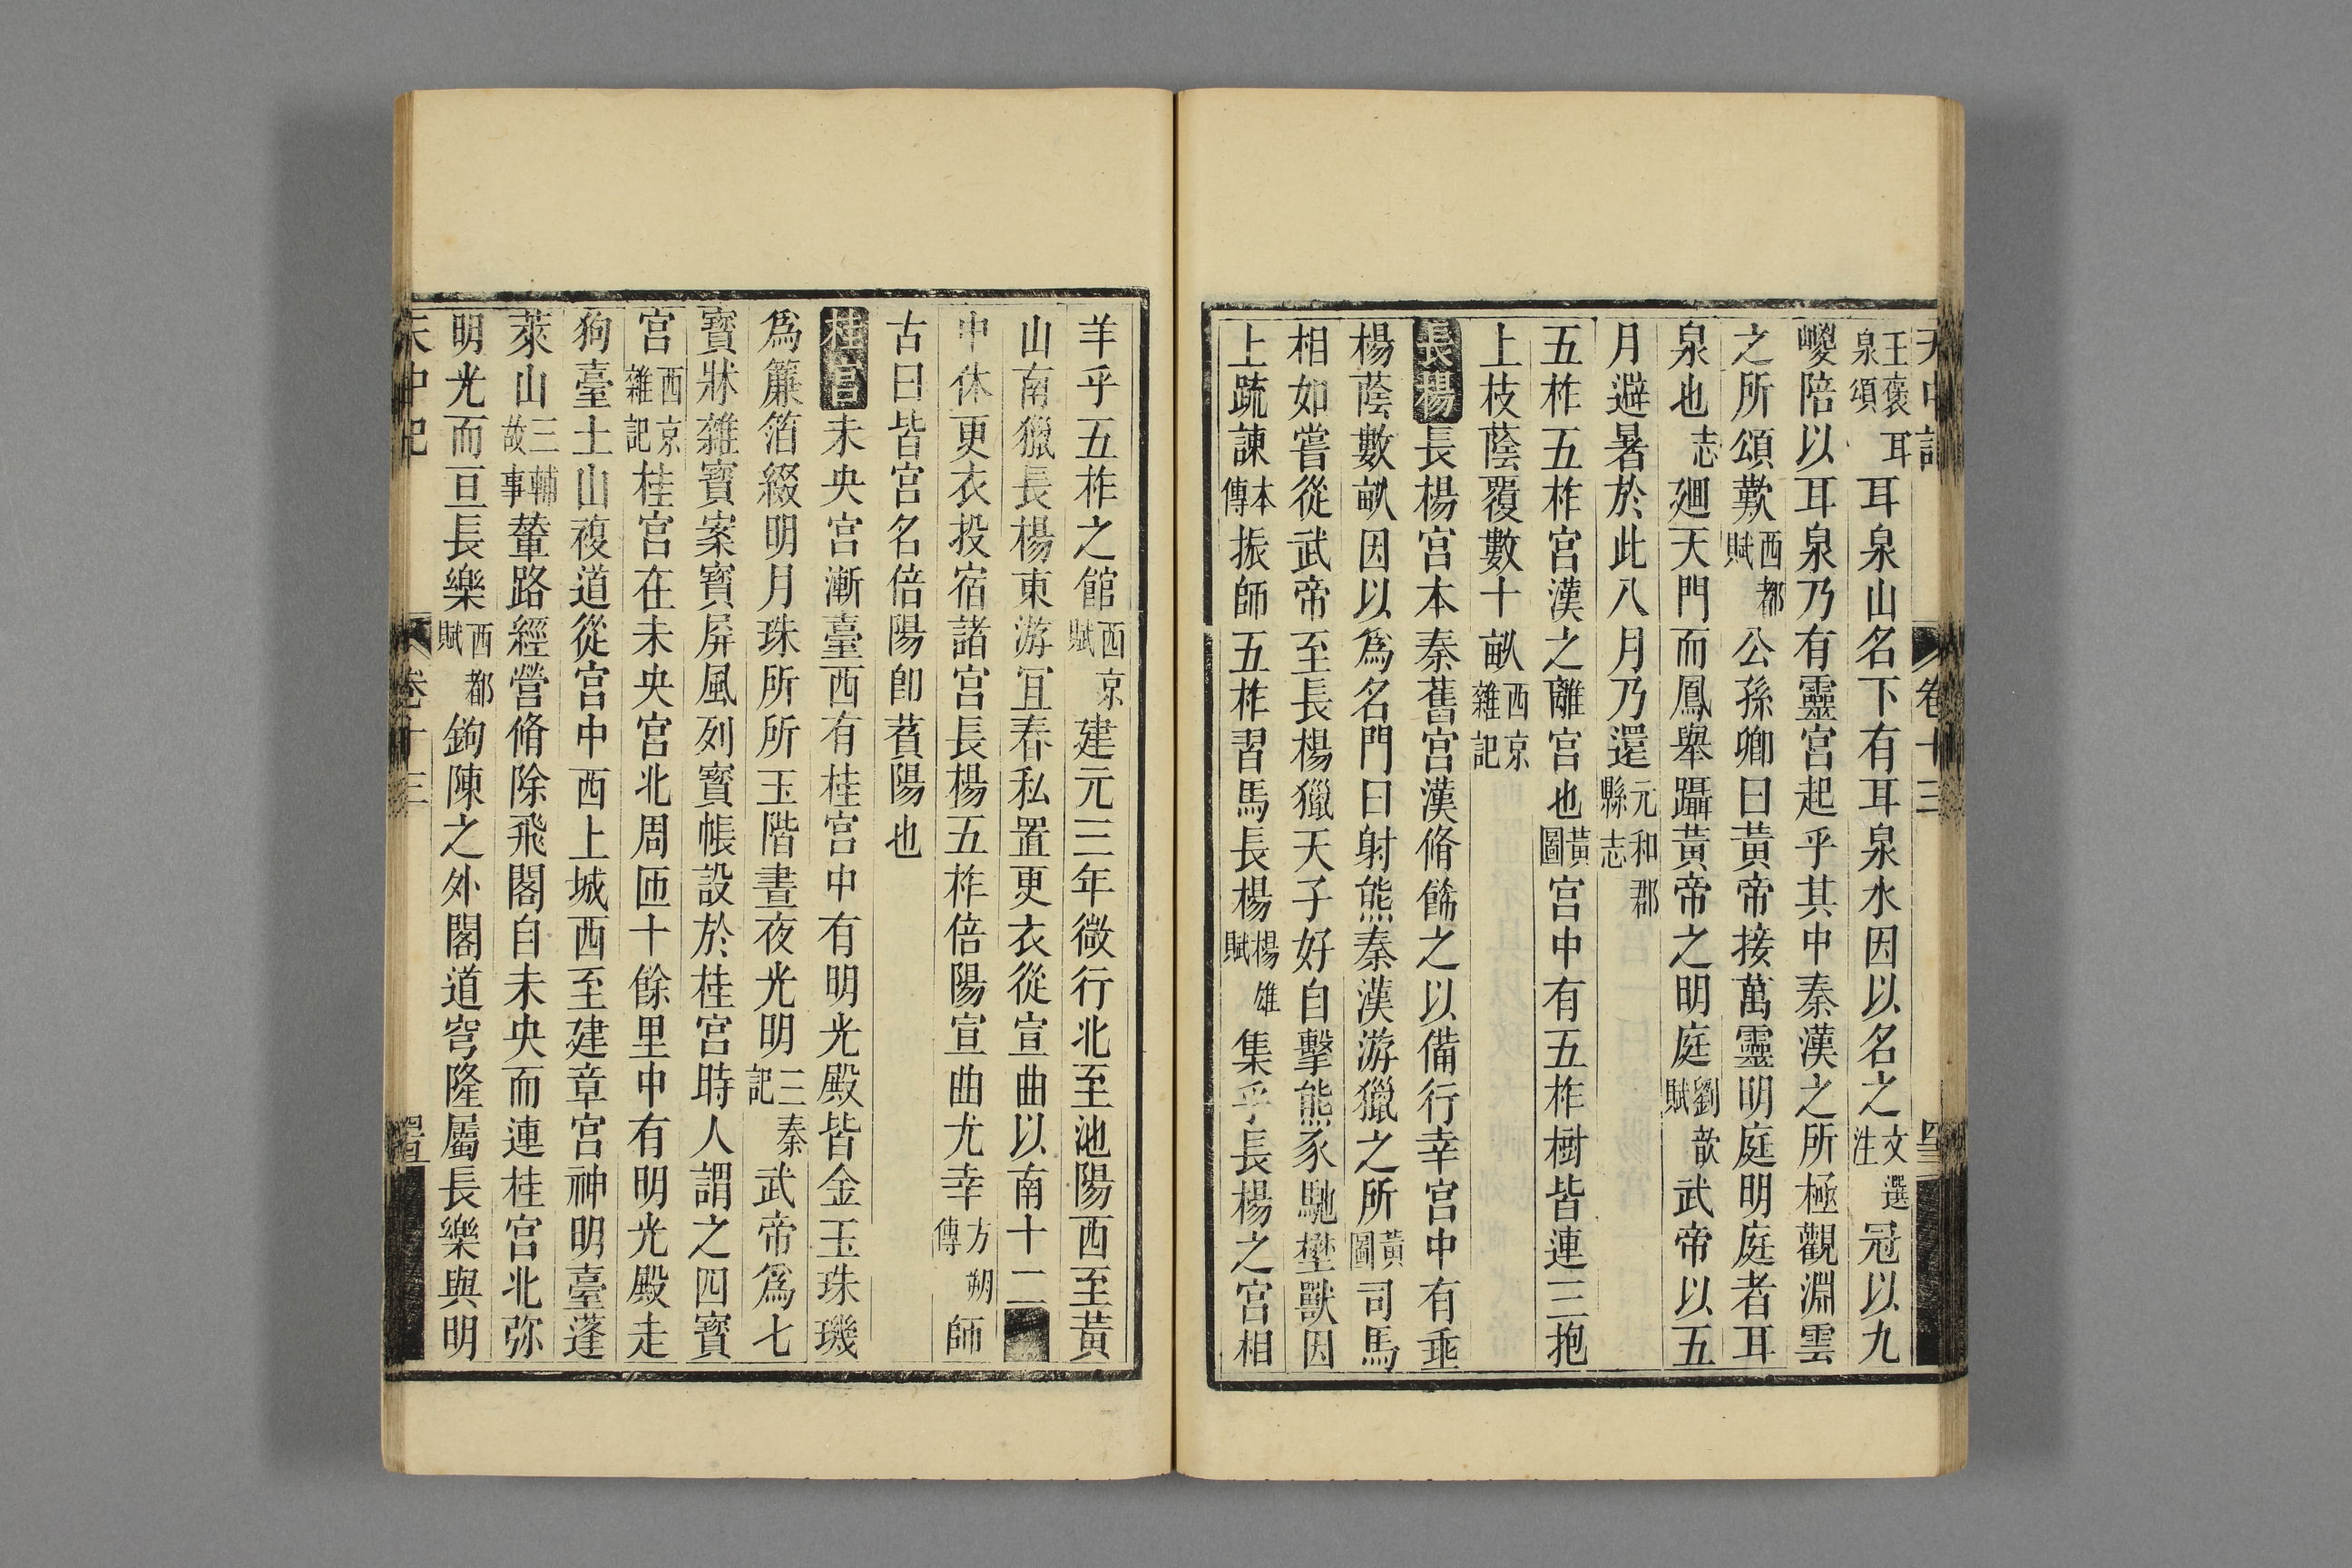 天中記 卷十三
王褒耳泉頌耳泉山名下有耳泉水因以名之文選注冠以九
嵕陪以耳泉乃有靈宮起乎其中秦漢之所極觀淵雲
之所頌歎西都賦公孫卿曰黃帝接萬靈明庭明庭者耳
泉也志廻天門而鳳舉躡黃帝之明庭劉歆賦武帝以五
月避暑於此八月乃還元和郡縣志
五柞五柞宮漢之離宮也黃圖宮中有五柞樹皆連三抱
上枝蔭覆數十畝西京雜記
長楊長楊宮本秦舊宮漢脩飾之以備行幸宮中有垂
楊蔭數畝因以爲名門曰射熊秦漢游獵之所黃圖司馬
相如嘗從武帝至長楊獵天子好自擊熊豕馳壄獸因
上疏諫本傳振師五柞習馬長楊楊雄賦集乎長楊之宮相
羊乎五柞之館西京賦建元三年微行北至池陽西至黃
山南獵長楊東游宜春私置更衣從宣曲以南十二
中休更衣投宿諸宮長楊五柞倍陽宣曲尤幸方朔傳師
古曰皆宮名倍陽卽萯陽也
桂宮未央宮漸臺西有桂宮中有明光殿皆金玉珠璣
爲簾箔綴明月珠所所玉階晝夜光明三秦記武帝爲七
寶牀雜寶案寶屏風列寶帳設於桂宮時人謂之四寶
宮西京雜記桂宮在未央宮北周匝十餘里中有明光殿走
狗臺土山複道從宮中西上城西至建章宮神明臺蓬
萊山三輔故事輦路經營脩除飛閣自未央而連桂宮北弥
明光而亘長樂西都賦鉤陳之外閣道穹隆屬長樂與明
天中記 卷十三